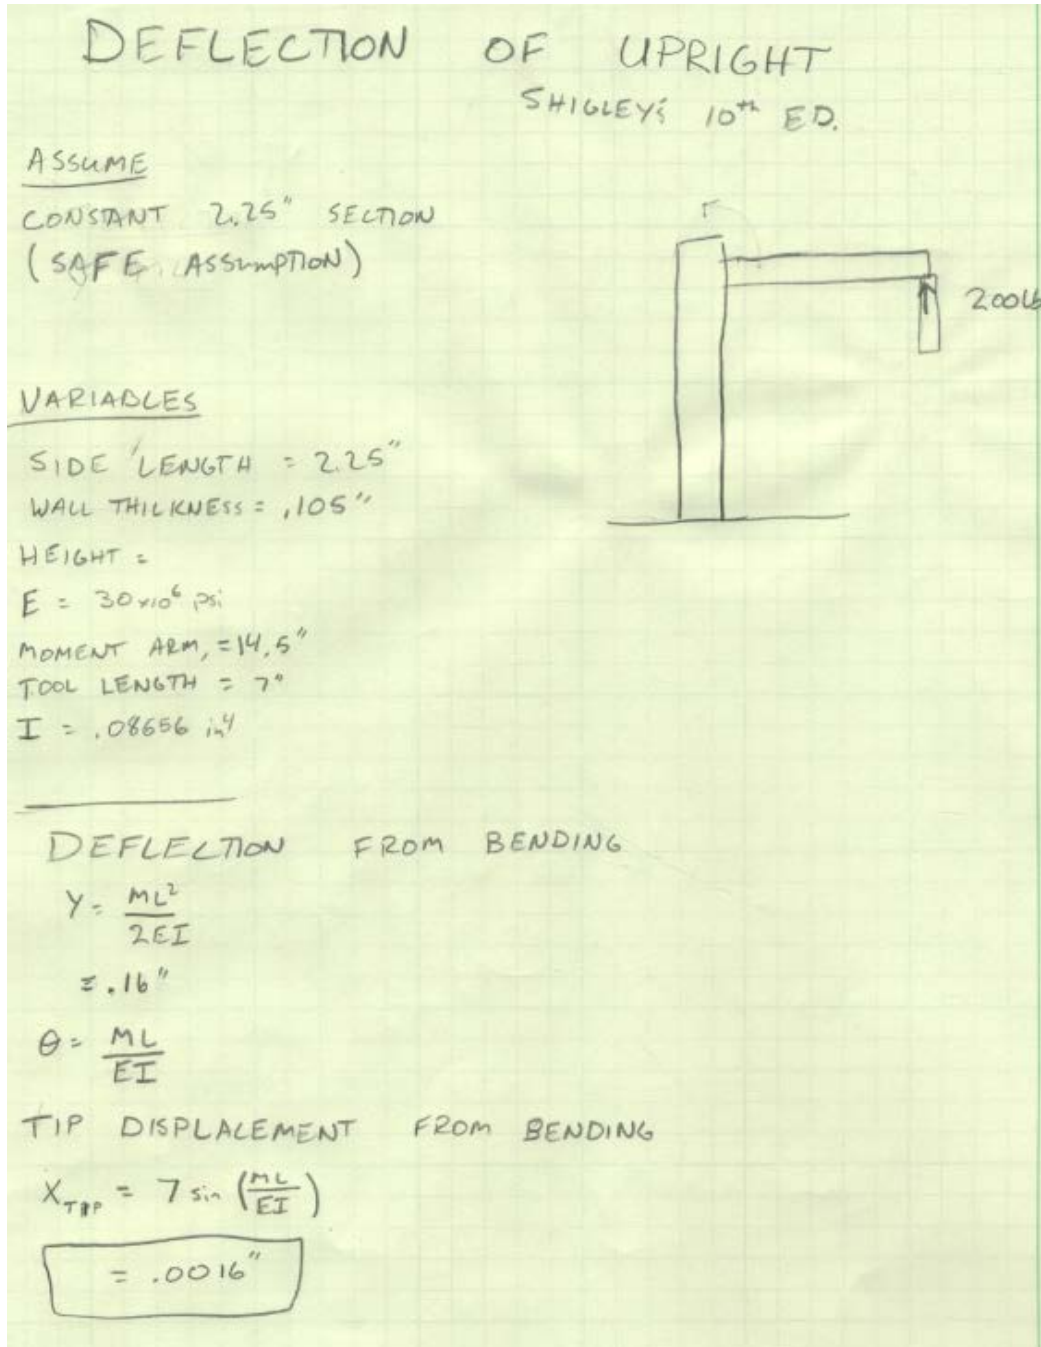 DEFLECTION OF UPRIGHT
SHIGLEY'S 10th ED.
ASSUME
CONSTANT 2.25" SECTION
(SAFE ASSUMPTION)
200lb
VARIABLES
SIDE LENGTH = 2.25"
WALL THICKNESS = .105"
HEIGHT =
E = 30x10⁶ psi
MOMENT ARM, = 14.5"
TOOL LENGTH = 7"
I = .08656 in⁴
DEFLECTION FROM BENDING
Y = ML²
2EI
= .16"
θ = ML
EI
TIP DISPLACEMENT FROM BENDING
X_TIP = 7 sin (ML/EI)
= .0016"